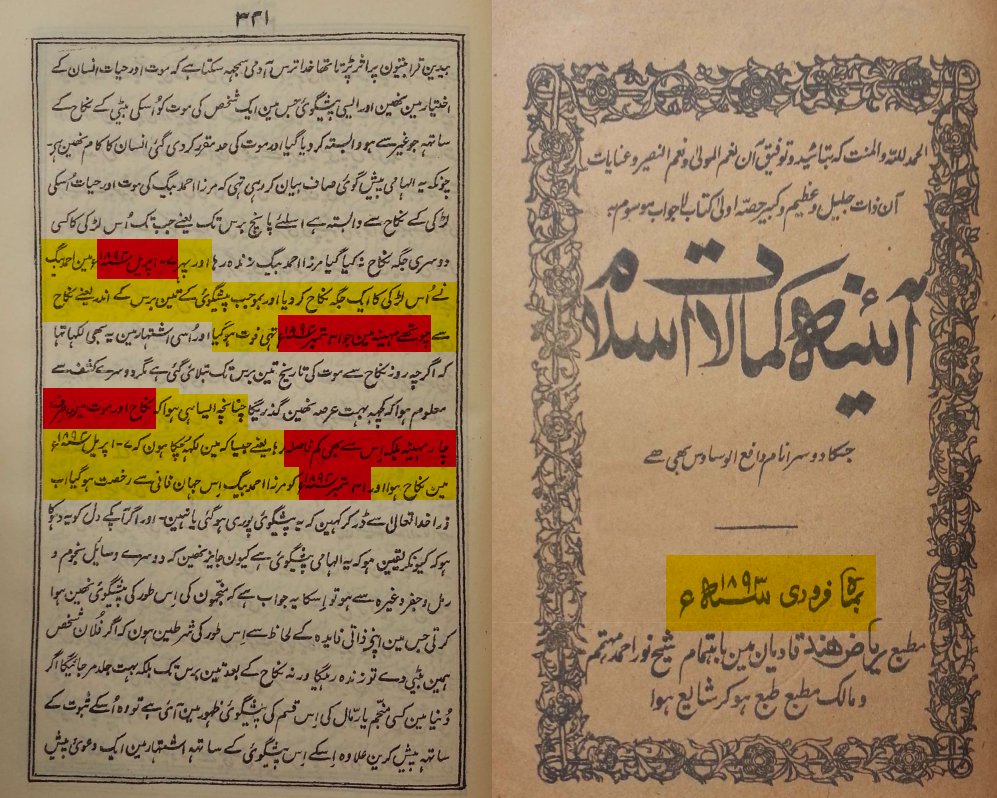 الحمد للہ والمنت کہ بتائید و توفیق آن نعم المولیٰ و نعم النصیر و عنایات
آن ذات جلیل و عظیم و کبیر حصہ اولیٰ کتاب لاجواب موسوم بہ
آئینہ کمالات اسلام
جسکا دوسرا نام دافع الوساوس بھی ہے
بماہ فروری ۱۸۹۳ سنہ ء
مطبع ریاض ہند قادیان مین باہتمام شیخ نور احمد مہتمم
و مالک مطبع طبع ہوکر شایع ہوا
۳۲۱
بیدین قرابتیون پر اثر پڑتا تھا خدا ترس آدمی سمجہہ سکتا ہے کہ موت اور حیات انسان کے
اختیار مین نھین اور ایسی پیشگوئی جس مین ایک شخص کی موت کو اُسکی بیٹی کے نکاح کے
ساتہہ جو غیر سے ہو وابستہ کر دیا گیا اور موت کی حد مقرر کر دی گئی انسان کا کام نھین ہے۔
چونکہ یہ الہامی پیش گوئی صاف بیان کر رہی تہی کہ مرزا احمد بیگ کی موت اور حیات اُسکی
لڑکی کے نکاح سے وابستہ ہے اسلئے پانچ برس تک یعنے جب تک اُس لڑکی کا کسی
دوسری جگہ نکاح نہ کیا گیا مرزا احمد بیگ زندہ رہا اور پہر ۷۔ اپریل ۱۸۹۲ء مین احمد بیگ
نے اُس لڑکی کا ایک جگہ نکاح کر دیا اور بموجب پیشگوئی کے تین برس کے اندر یعنے نکاح
سے چوتھے مہینہ مین جو ۳۱ ستمبر ۱۸۹۲ء تہی فوت ہو گیا اور اُسی اشتہار مین یہ بھی لکہا تہا
کہ اگرچہ روز نکاح سے موت کی تاریخ تین برس تک بتلائی گئی ہے مگر دوسرے کشف سے
معلوم ہوا کہ کچہہ بہت عرصہ نھین گذریگا چنانچہ ایسا ہی ہوا کہ نکاح اور موت مین صرف
چار مہینہ بلکہ اس سے بھی کم فاصلہ رہا یعنے جیسا کہ مین لکہہ چکا ہون کہ ۷۔ اپریل ۱۸۹۲ء
مین نکاح ہوا اور ۳۱ ستمبر ۱۸۹۲ کو مرزا احمد بیگ اِس جہان فانی سے رخصت ہو گیا اب
ذرا خدا تعالیٰ سے ڈر کر کہین کہ یہ پیشگوئی پوری ہو گئی یا نہین۔ اور اگر آپکے دل کو یہ دہوکا
ہو کہ کیونکر یقین ہو کہ یہ الہامی پیشگوئی ہے کیون جایز نھین کہ دوسرے وسایل نجوم و
رمل و جفر وغیرہ سے ہو تو اِسکا یہ جواب ہے کہ منجمون کی اِس طور کی پیشگوئی نھین ہوا
کرتی جس مین اپنے ذاتی فایدہ کے لحاظ سے اِس طور کی شرطین ہون کہ اگر فلان شخص
ہمین بیٹی دے تو زندہ رہیگا ورنہ نکاح کے بعد تین برس تک بلکہ بہت جلد مر جائیگا اگر
دُنیا مین کسی منجم یا رمّال کی اِس قسم کی پیشگوئی ظہور مین آئی ہے تو وہ اُسکے ثبوت کے
ساتہہ پیش کرین علاوہ اِسکے اِس پیشگوئی کے ساتہہ اشتہار مین ایک دعویٰ پیش